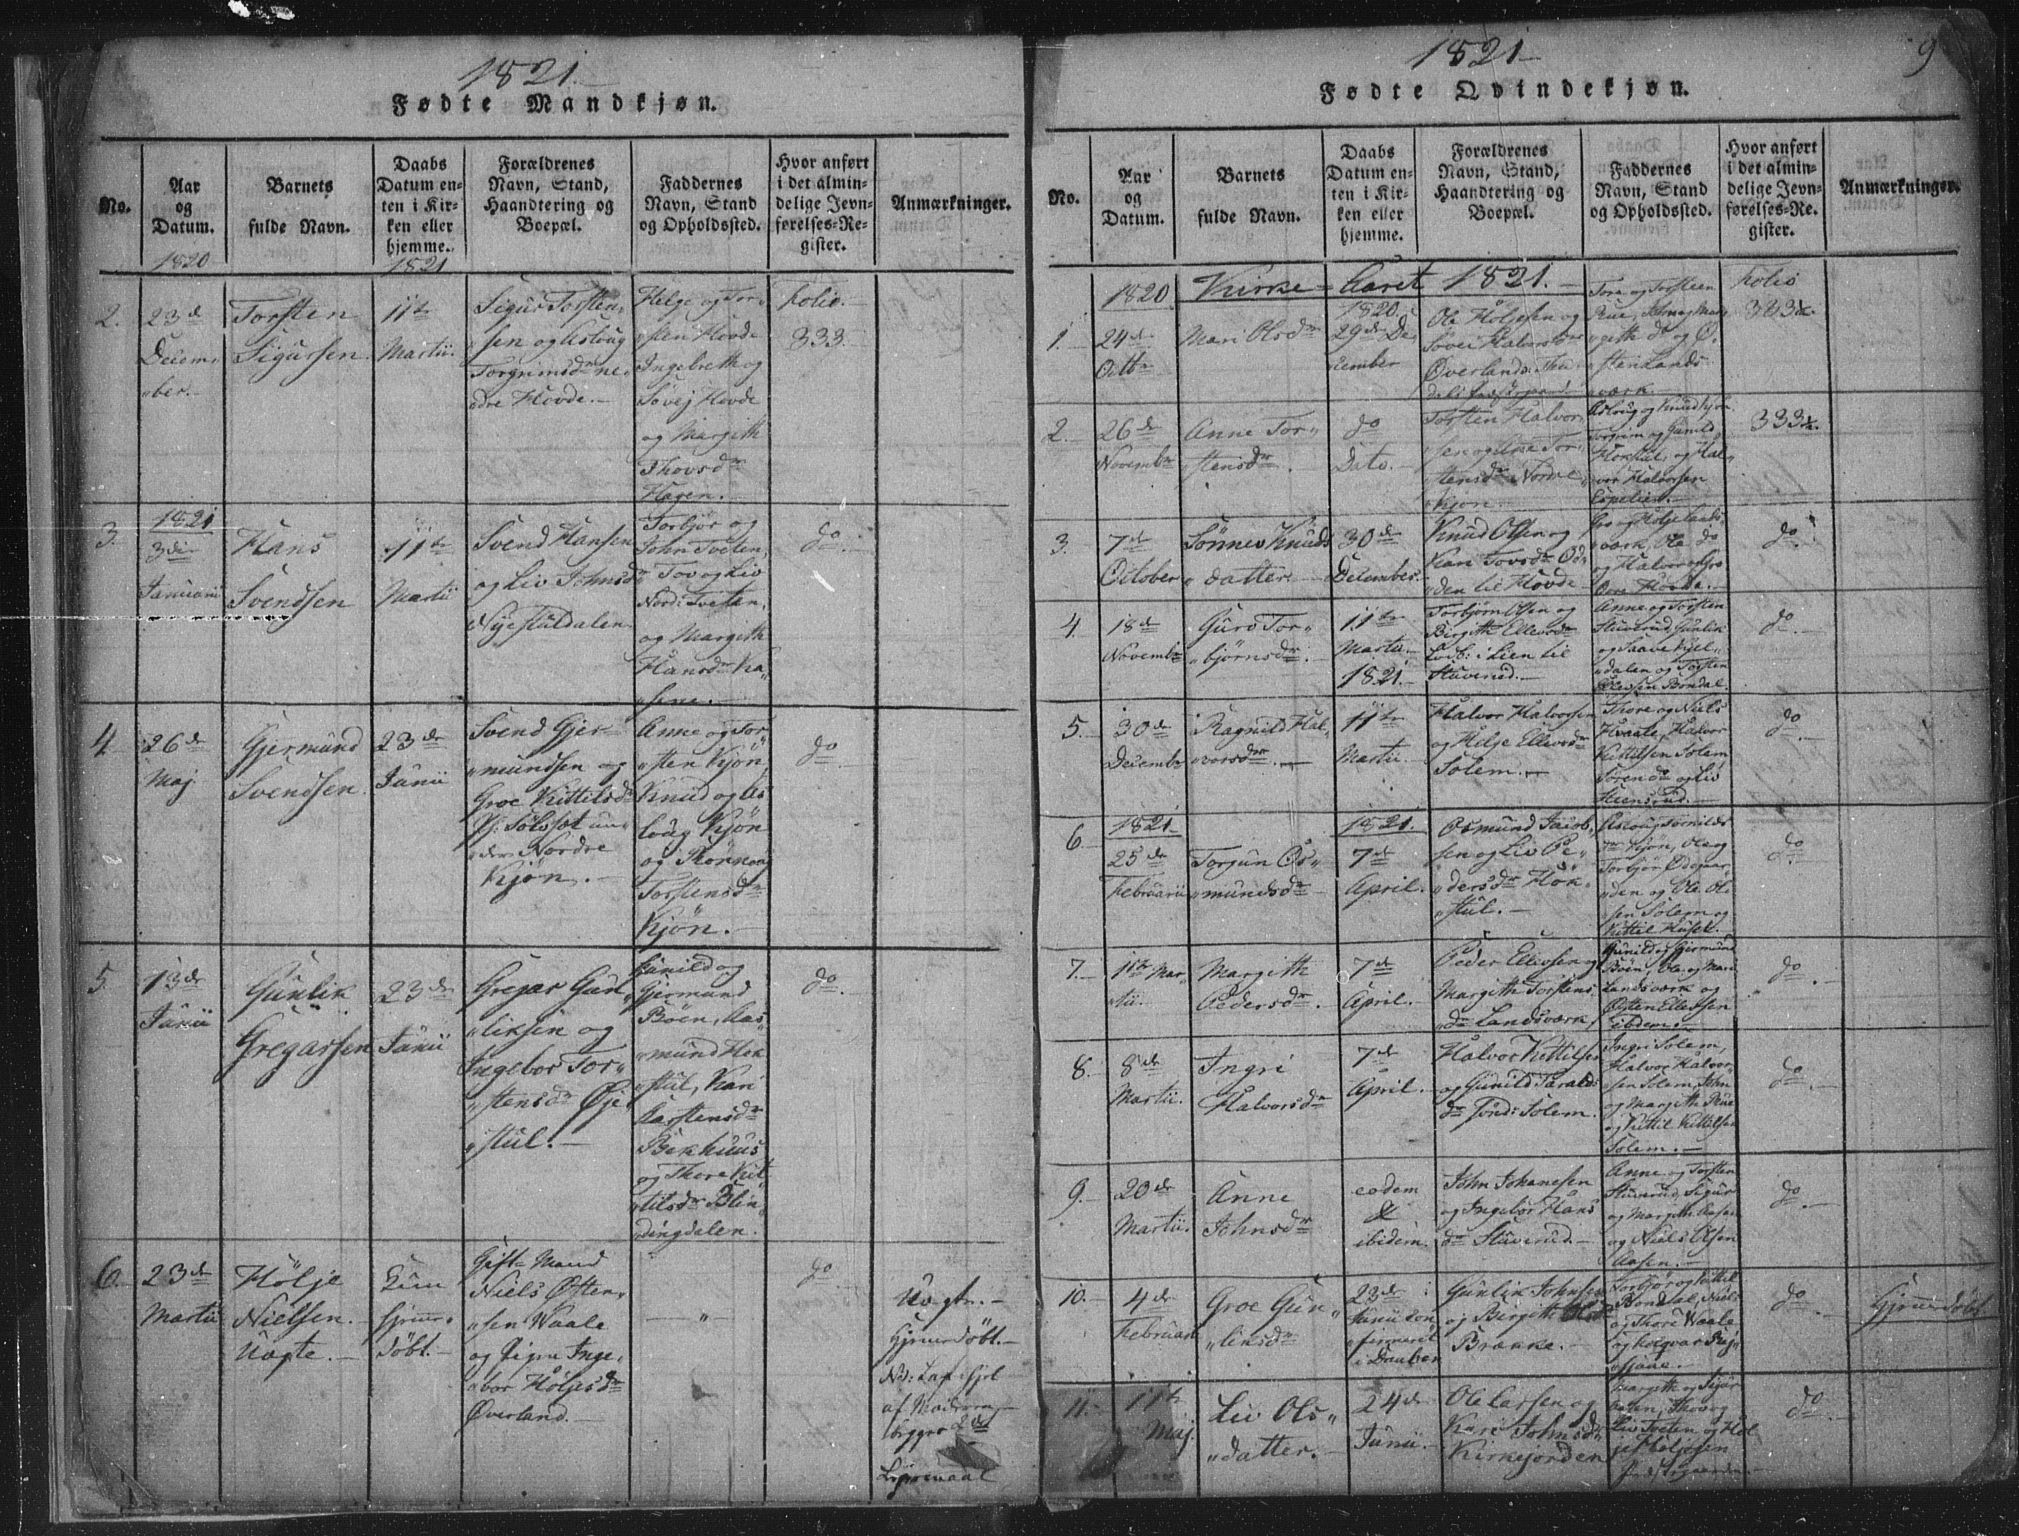 1821.
Fødte Mandkjøn.
No.
Aar
og
Datum.
Barnets
fulde Navn.
Daabs
Datum en-
ten i Kir-
ken eller
hjemme.
Forældrenes
Navn, Stand,
Haandtering og
Boepæl.
Faddernes
Navn, Stand
og Opholdssted.
Hvor anført
i det almin-
delige Jevn-
førelses-Re-
gister.
Anmærkninger.
1820
1821
2.
23de
Decem„
„ber.
Torsten
Sigursen.
11te
Martii.
Sigur Torsten„
„sen og Aslaug
Torgrimsdr ne„
„dre Hovde.
Helge og Tor„
„sten Hovde
Ingebreth og
Sovej Hovde
og Margith
Thovsdr
Hagen.
folio.
333.
3.
1821
3die
Januarii
Hans
Svendsen
11te
Martii
Svend Hansen
og Liv Johnsdr
Nyestuldalen
Torbjør og
John Tveten,
Tov og Liv
Nord: Tveten,
og Margith
Hansdr Ka„
„sene.
do.
4
26de
Maj
Gjermund
Svendsen.
23de
Junii
Svend Gjer„
„mundsen og
Groe Kittilsdr
Pl: Solsæt un„
„der Nordre
Kjøn.
Anne og Tor„
„sten Kjøn
Knud og As„
loug Kjøn
og Rønnoug
Torstensdr
Kjøn.
do
5.
13de
Junii
Gunlik
Gregarsen
23de
Junii
Gregar Gun„
„liksen og
Ingebor Tor„
„stensdr Øje„
„stul.
Gunild og
Gjermund
Bøen, Aas„
„mund Hok„
„stul, Kari
Karstensdr
Bekhuus
og Thore Kit„
tilsdr Blin„
„dingdalen.
do.
6.
23de
Martii
Hölje
Nielsen.
Uægte.
Kun
hjemme„
døbt.
Gift Mand
Niels Østen„
„sen Waale
og Pigen Inge„
„bor Höljesdr
Øverland.
„
do
Uægte.
Hjemmedöbt.
No: Laf: Hjel
af Moderen
1821.
9
Fødte Qvindekjøn.
No.
Aar
og
Datum.
Barnets
fulde Navn.
Daabs
Datum en-
ten i Kir-
ken eller
hjemme.
Forældrenes
Navn, Stand,
Haandtering og
Boepæl.
Faddernes
Navn, Stand
og Opholdssted.
Hvor anført
i det almin-
delige Jevn-
førelses-Re-
gister.
Anmærkninger.
1820
Kirke Aaret 1821.
1.
24de
Octbr
Mari Olsdr
1820.
29de De
cember
Ole Höljesen og
Sovei Halvorsdr
Øverland:
Tore og Torsteen
Rue, John og Mar„
„gith do og Ø„
„sten Lands„
„værk
folio
333
2.
26de
Novembr
Anne Tor„
„stensdr.
do
Dato.
Torsten Halvor„
„sen og Anne Tor„
„stensdr Nordre
Kjøn
Asloug og Knud Kjøn
Torgrim og Gunild
Hokstul, og Hal„
„vor Halvorsen
Espelien.
333
3.
7de
October
Sönnev Knuds
„datter
30de
December.
Knud Olsen og
Kari Tovsdr Od„
„den til Hovde
Gro og Hölje Lands„
„værk, Ole do
og Halvor og Gro
Øvre Hovde.
do.
4.
18de
Novembr
Guro Tor„
„bjørnsdr.
11te
Martii.
1821.
Torbjörn Olsen og
Birgith Ellevsdr
Losb: i Lien til
Stuverud.
Anne og Torsten
Stuverud, Gunlik
og Saave Kjel„
„dalen og Torsten
Olevsen Bondal.
do.
5.
30de
Decembr
Ragnild Hal„
„vorsdtr.
11te
Martii.
Halvor Halvorsen
og Helje Ellevsdr
Solem.
Thore og Niels
Hvaale, Halvor
Kittilsen Solem
Søren do og Liv
Steensrud.
do.
6
1821
25de
Februarii
Torgun Os„
„mundsdr
1821.
7de
April.
Osmund Jacob„
„sen og Liv Pe„
„dersdr Hok„
„stul.
Asloug Tornilds
dr Kjøn, Ole og
Torbjør Ødegaar„
„den og Ole Ol„
„sen Solem og
Kittil Huset.
do.
7.
11te Mar„
„tii.
Margith
Pedersdr.
7de
April.
Peder Ellevsen og
Margith Torstens„
„dr Landsværk
Gunild og Gjermund
Bøen, Ole og Mari
Landsværk og
Østen Ellevsen
ibidem.
do
8.
8de
Martii.
Ingri
Halvorsdr
7de
April.
Halvor Kittilsen
og Gunild Taralds
dr Sönd: Solem.
Ingri Solem,
Halvor Halvor„
„sen Solem, John
og Margith Rue
og Kittil Kittilsen
Solem.
do
9.
20de
Martii.
Anne
Johnsdr
eodem
&
ibidem.
John Johanesen
og Ingebor Hans
dr Stuverud.
Anne og Torsten
Stuverud, Sigur
og Margith Aasen
og Niels Olsen
Aasen.
do.
10.
4de
Februarii
Groe Gun„
„liksdr
23de
Junii con„
„firmeret
i Daaben
Gunlik Johnsen
og Birgith
Brække.
Torbjør og Kittil
Bondal, Niels
og Thore Waale
do.
Hjemmedöbt
11.
11te
Maj.
Liv Ols„
„datter.
24de
Junii.
Ole Larsen og
Kari Johnsdr
Kirkejorden
Margith og Sigur
Aasen, Thov og
Liv Tveten og Höl
je Höljesen
do.